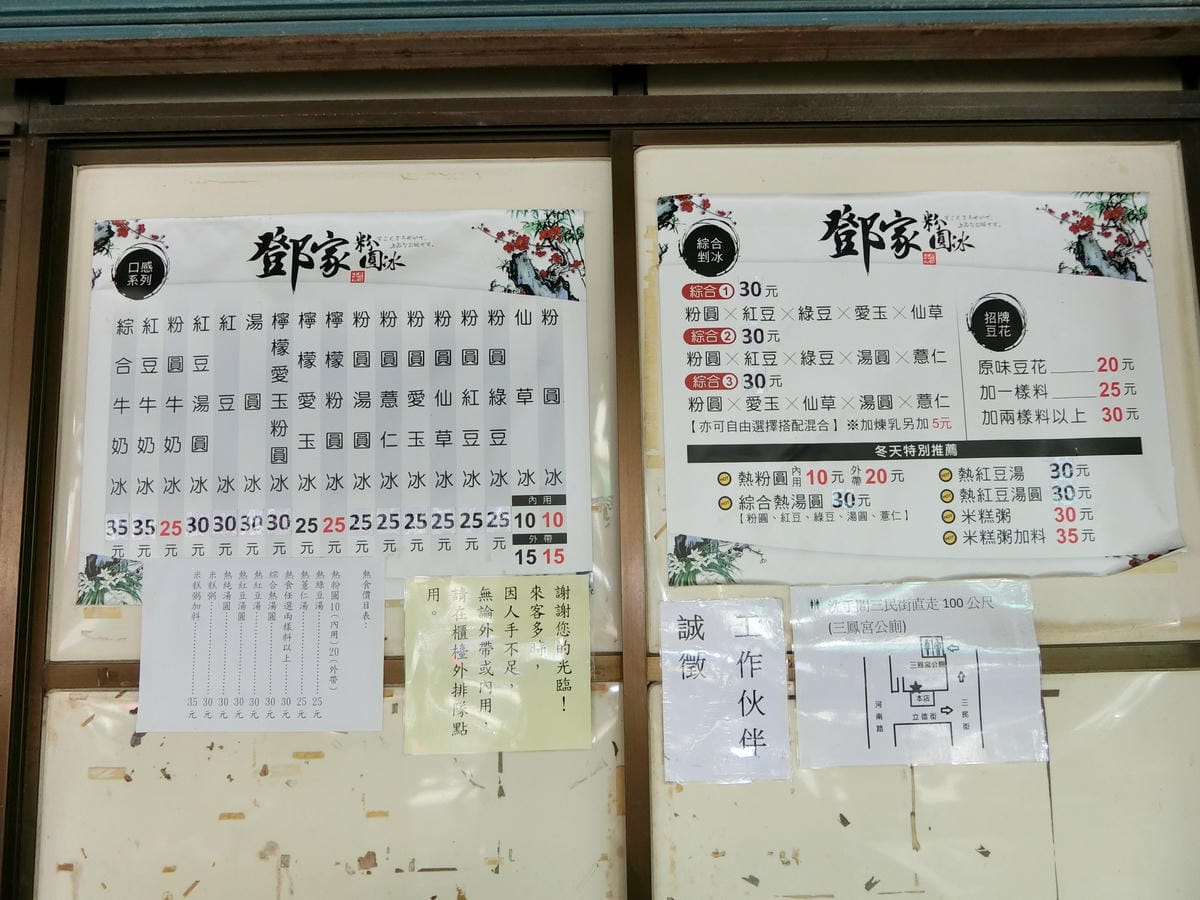 口感
系列
鄧家
粉圓冰
粉圓冰
仙草冰
粉圓綠豆冰
粉圓紅豆冰
粉圓仙草冰
粉圓愛玉冰
粉圓薏仁冰
粉圓湯圓冰
檸檬粉圓冰
檸檬愛玉冰
檸檬愛玉粉圓冰
湯圓冰
紅豆冰
紅豆湯圓冰
粉圓牛奶冰
紅豆牛奶冰
綜合牛奶冰
內用
35 35 25 30 30 30 30 25 25 25 25 25 25 25 25 10 10
元 元 元 元 元 元 元 元 元 元 元 元 元 元 元
外帶
15 15
熱食價目表：
熱粉圓10（內用）20（外帶）
熱綠豆湯 25元
熱薏仁湯 25元
熱食任選兩樣料以上 30元
綜合熱湯圓 30元
熱紅豆湯 30元
熱紅豆湯圓 30元
熱純湯圓 30元
米糕粥 30元
米糕粥加料 35元
謝謝您的光臨！
來客多時，
因人手不足，
無論外帶或內用，
請在櫃檯外排隊點
用。
綜合
剉冰
鄧家
粉圓冰
綜合1 30元
粉圓×紅豆×綠豆×愛玉×仙草
綜合2 30元
粉圓×紅豆×綠豆×湯圓×薏仁
綜合3 30元
粉圓×愛玉×仙草×湯圓×薏仁
【亦可自由選擇搭配混合】※加煉乳另加5元
招牌
豆花
原味豆花 20元
加一樣料 25元
加兩樣料以上 30元
冬天特別推薦
熱粉圓 內用10元 外帶20元
綜合熱湯圓 30元
【粉圓、紅豆、綠豆、湯圓、薏仁】
熱紅豆湯 30元
熱紅豆湯圓 30元
米糕粥 30元
米糕粥加料 35元
誠徵
工作伙伴
洗手間三民街直走100公尺
(三鳳宮公廁)
三鳳宮公廁
本店
立德街
河南路
三民街